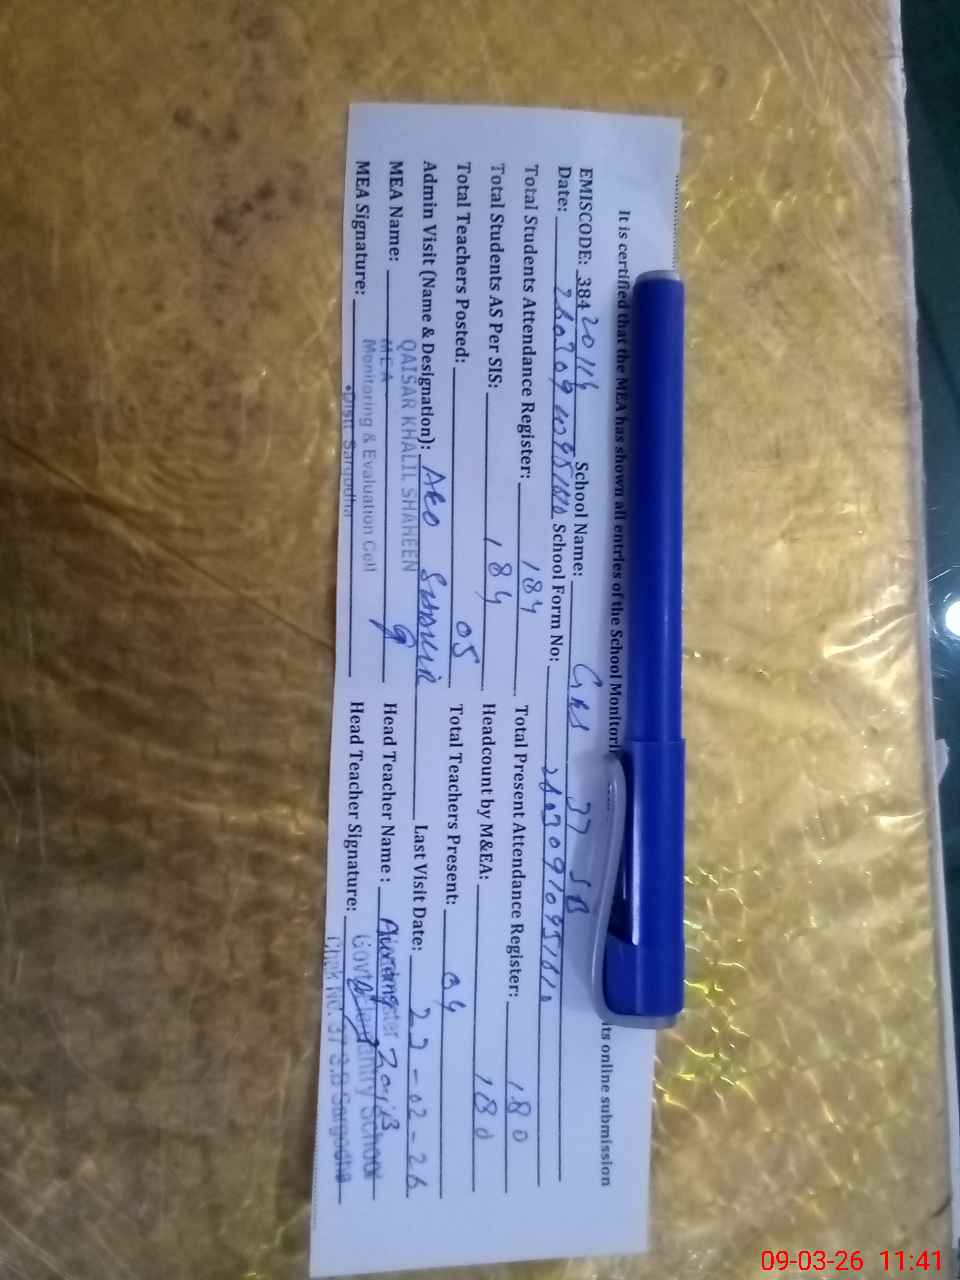 It is certified that the MEA has shown all entries of the School Monitori its online submission
EMISCODE: 38420114 School Name: GES 37 SB
Date: School Form No:
Total Students Attendance Register: 184 Total Present Attendance Register: 180
Total Students AS Per SIS: 184 Headcount by M&EA: 180
Total Teachers Posted: 05 Total Teachers Present: 04
Admin Visit (Name & Designation): AEO Last Visit Date: 23-02-26
MEA Name: QAISAR KHALIL SHAHEEN Head Teacher Name:
MEA
MEA Signature: Monitoring & Evaluation Cell Head Teacher Signature:
Distt. Sargodha
Govt. School
Chak No. 37 S.B Sargodha
09-03-26 11:41